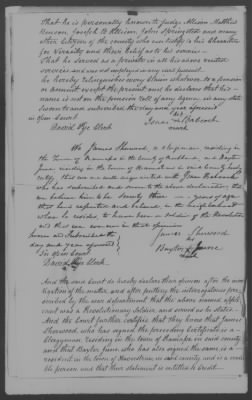 That he is personally known to Judge Allison, Matthew
Benson, Joseph B Allison, John Springsted and many
other Citizens of the county who can testify to his Character
for Veracity and their belief as to his services
That he served as a private in all his above recited
services and was not employed in any civil pursuit
he hereby relinquishes every claim whatever to a pension
or annuity except the present and he declares that his
name is not on the pension roll of any agency in any state
Sworn to and subscribed the day and year aforesaid
in open Court
his
Jonas Babcock
mark
David Pye Clerk
We James Sherwood, a clergyman residing in
the Town of Ramapo in the County of Rockland, and
residing in the town of in said County hereby
certify that we are well acquainted with Jonas Babcock
who has subscribed and sworn to the above declaration, that
we believe him to be years of age
that he is reputed and believed in the neighborhood
where he resides, to have been a soldier of the Revolution
and that we concur in that opinion
Sworn and Subscribed the
day and year aforesaid
In Open Court
James Sherwood
his
mark
David Pye Clerk
And the said Court do hereby declare their opinion after the inves
tigation of the matter, and after putting the interrogatories pres
cribed by the war department that the above named appli
cant was a Revolutionary Soldier and served as he states
And the Court further certifies that they know that James
Sherwood, who has signed the preceding Certificate is a
Clergyman residing in the town of Ramapo in said county
and that who has also signed the same is a
resident in the town of in said county and is a credi
ble person and that their statement is entitled to credit